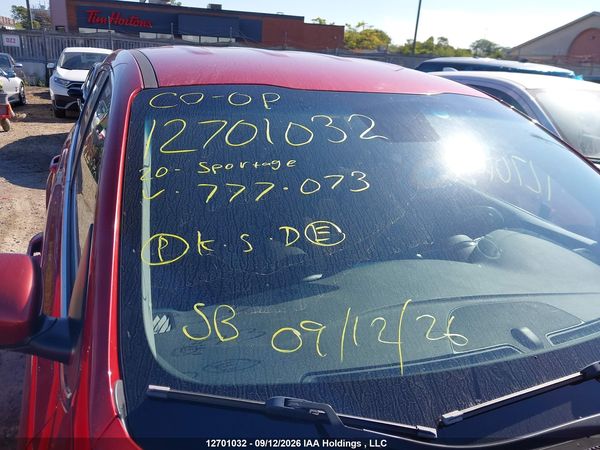 Tim Hortons
CO-OP
12701032
20- Sportage
V- 777-073
P K. S. D E
SB 09/12/26
12701032 - 09/12/2026 IAA Holdings , LLC